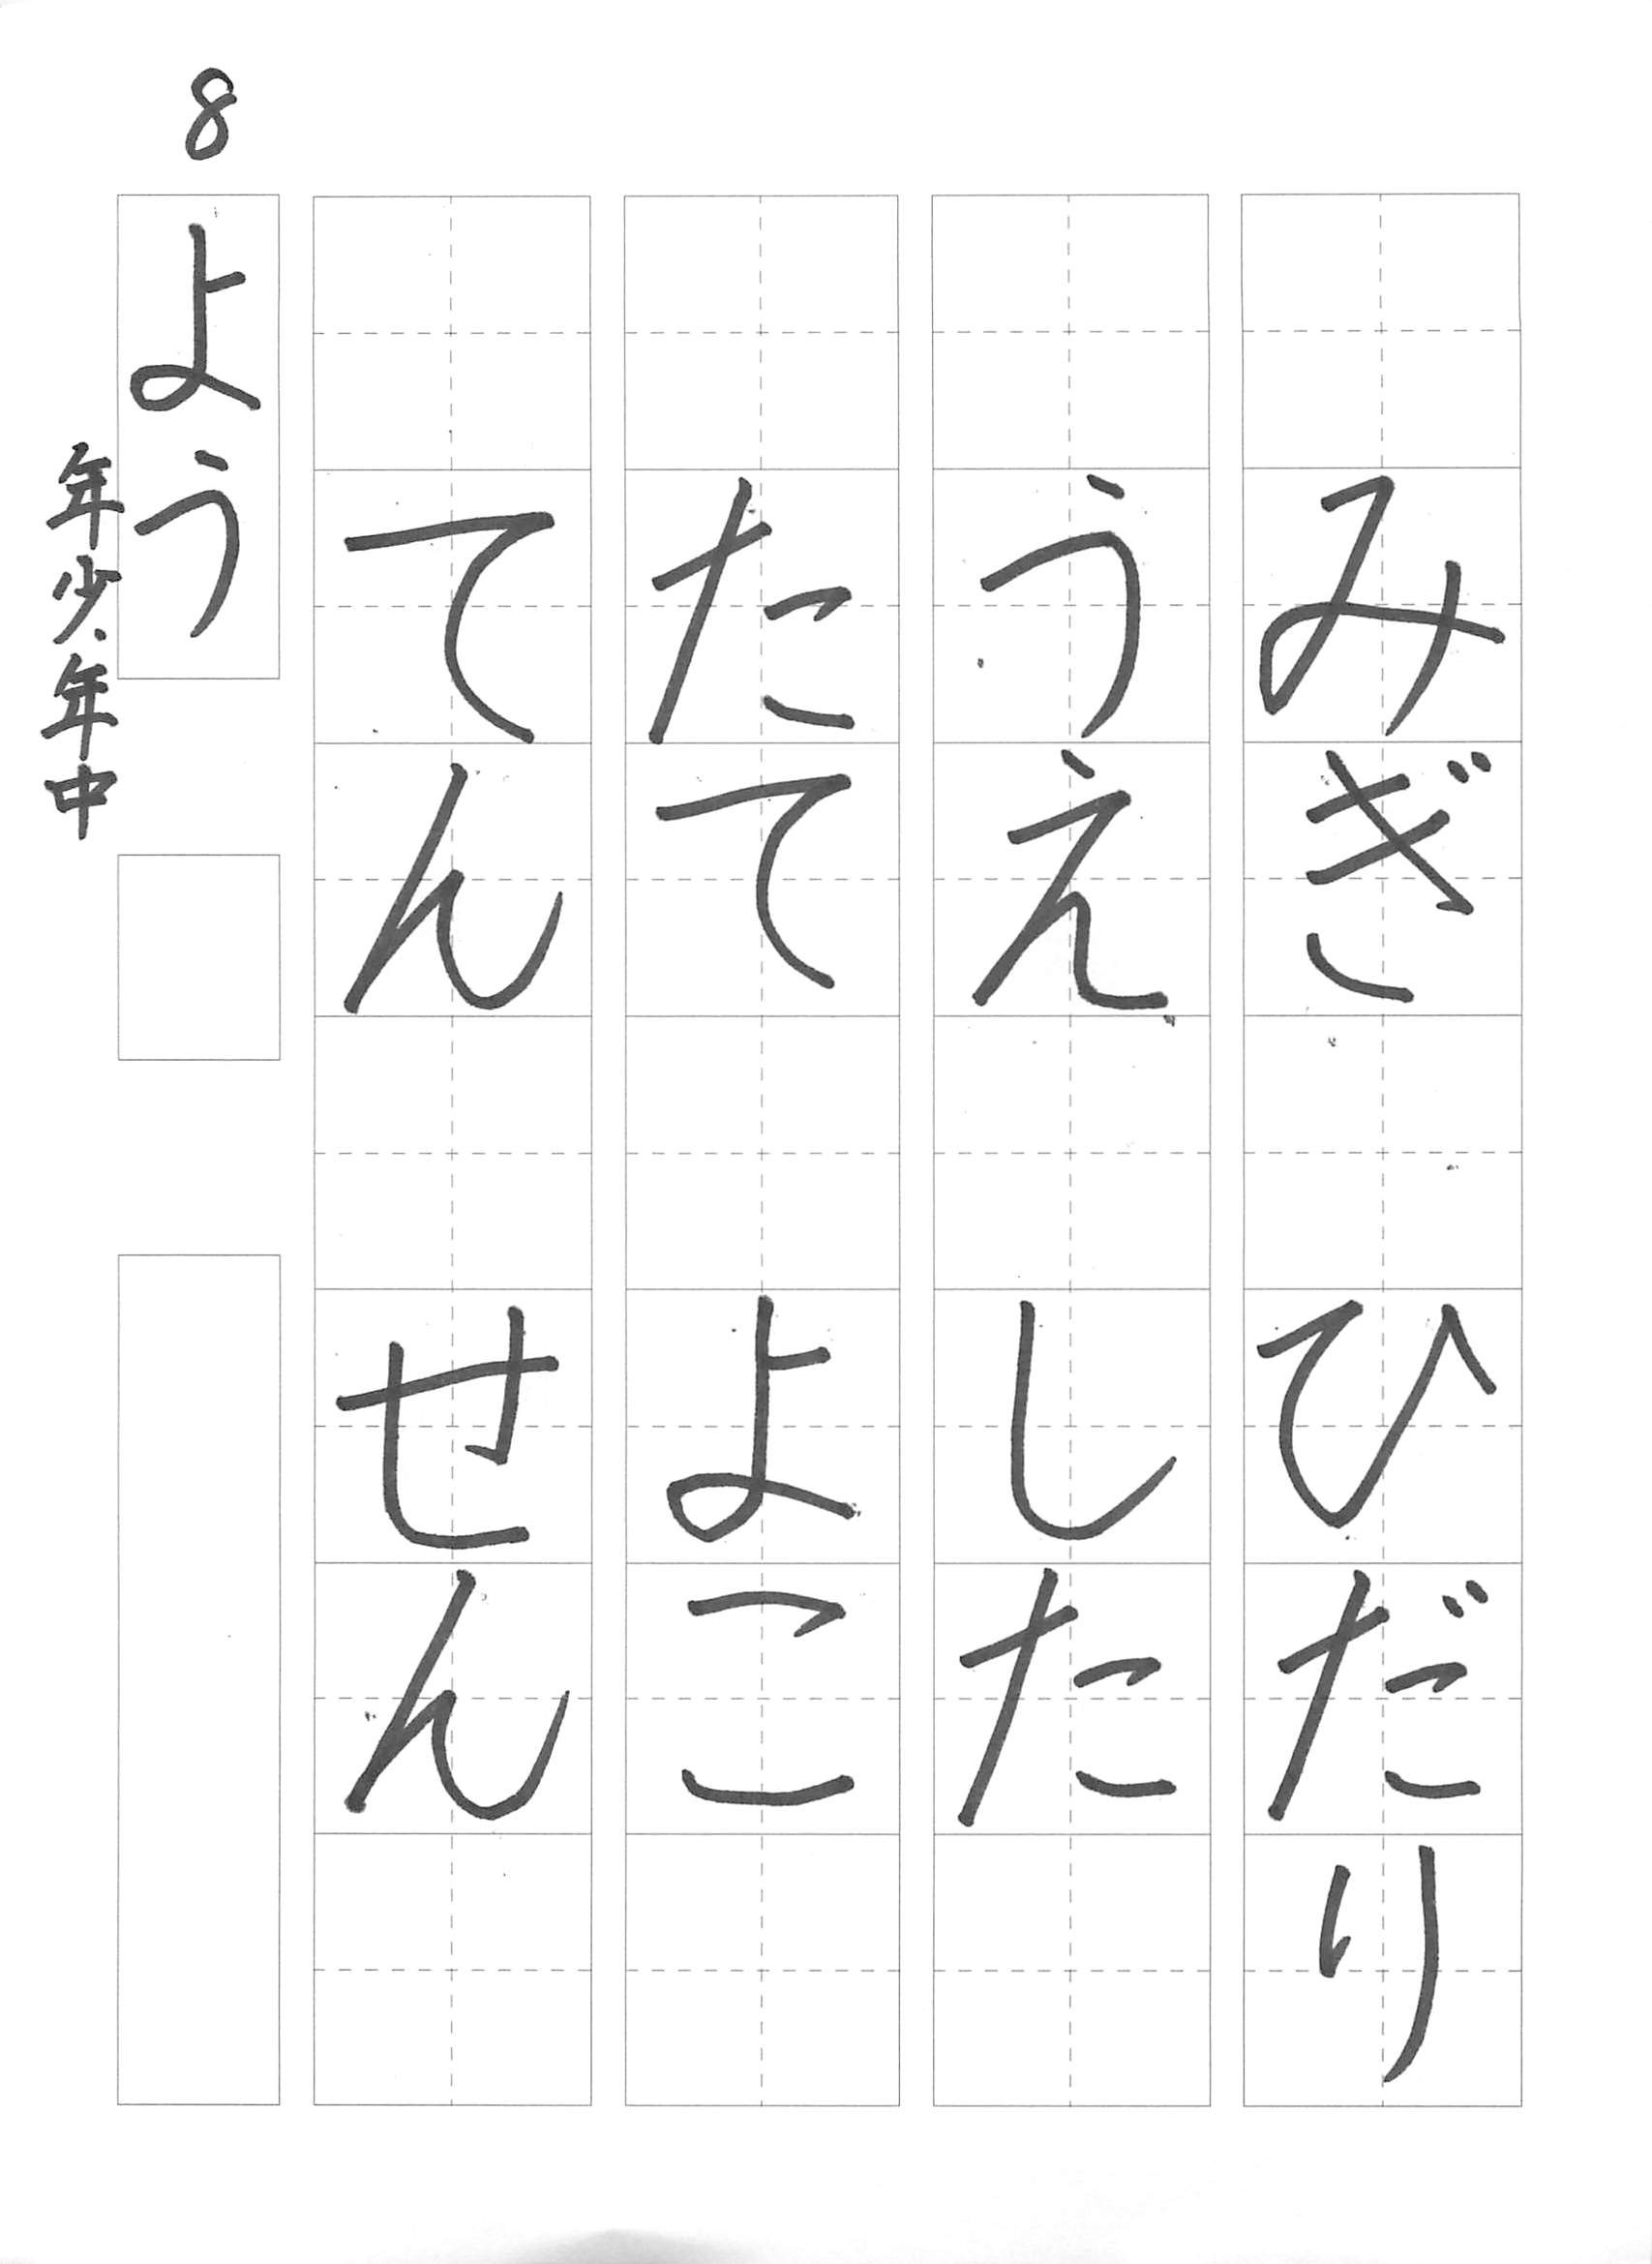 みぎ　ひだり
うえ　した
たて　よこ
てん　せん
8
よう
年少・年中